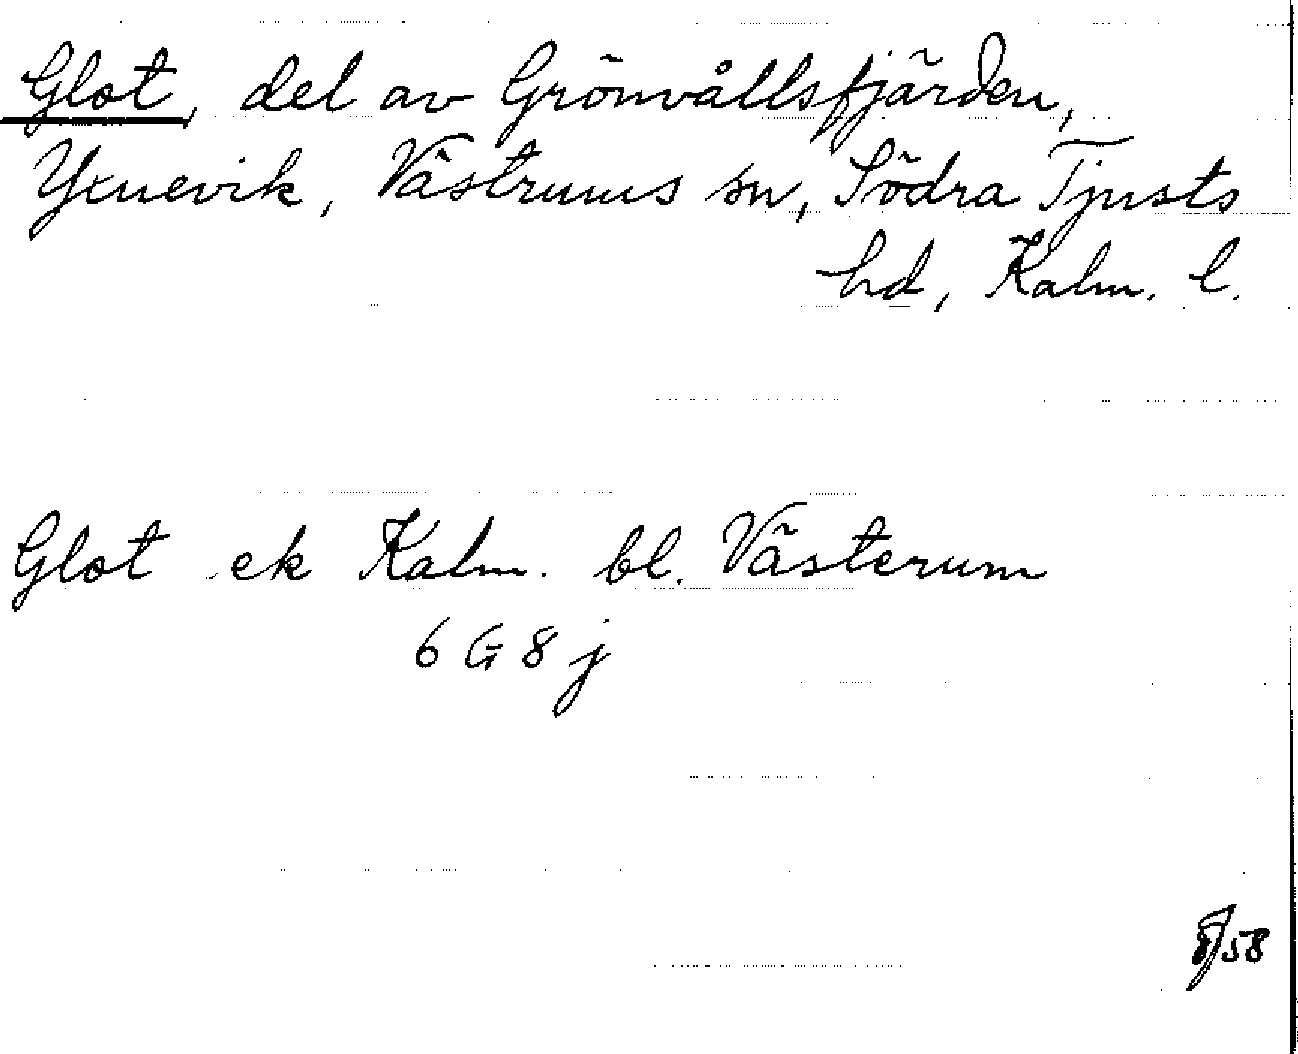 Glot, del av Grönvållsfjärden,
Yxnevik, Västrums sn, Södra Tjusts
hd, Kalm. l.
Glot ek Kalm. bl. Västerum
6 G 8 j
58